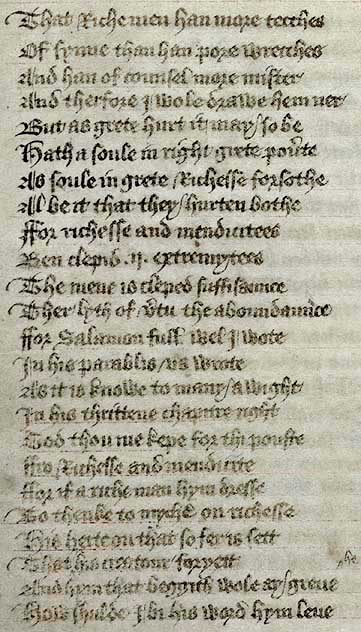 That Riche men han more tecches
Of synne than han pore wrecches
And han of counsel more mister
And therfore I wole drawe hem ner
But as grete hurt it may / so be
Hath a soule in right grete pou'te
As soule in grete Richesse forsothe
Al be it that they / hurten bothe
Ffor richesse and mendicitees
Ben cleped .ij. extremytees
The mene is cleped suffisaunce
Ther lyth of v'tu the aboundaunce
Ffor Salamon full wel I wote
In his parablis / us wrote
As it is knowe to many / a wight
In his thrittene chaptre right
God thou me kepe for thi pouste
Ffro Richesse and mendicite
Ffor if a riche man hym dresse
To thenke to myche on richesse
His herte on that so fer is sett
That his creatour foryett
And hym that beggith wole ay / greve
How shulde I bi his word hym leve